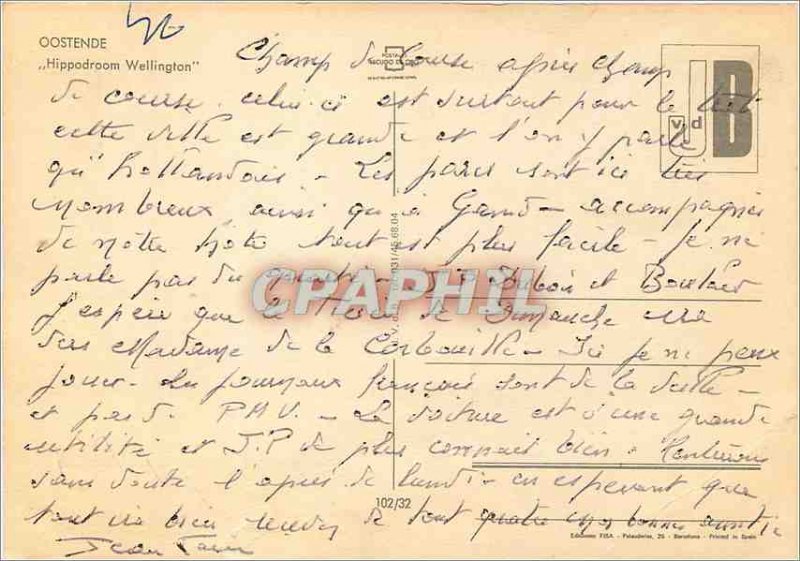 OOSTENDE
„Hippodroom Wellington"
Champ de course après champ
de course. celui-ci est surtout pour le trot
cette ville est grande et l'on y parle
qu' hollandais - Les parcs sont ici très
nombreux ainsi qu'à Gand - accompagnés
de notre hôte tout est plus facile - Je ne
parle pas du J.P. Dubois et
J'espère que le Tiercé de Dimanche ira
vers Madame de la - Ici je ne peux
jouer - Les journaux français sont de la veille -
et pas de P.M.U. - La voiture est d'une grande
utilité et J.P. de plus connait bien -
sans doute l'après de lundi - en espérant que
tout va bien recevez de tout quatre nos bonnes
Jean
vd
JB
V. d. 031/48.68.04
102/32
CPARHIL
Ediciones FISA - Palaudarias, 26 - Barcelona - Printed in Spain